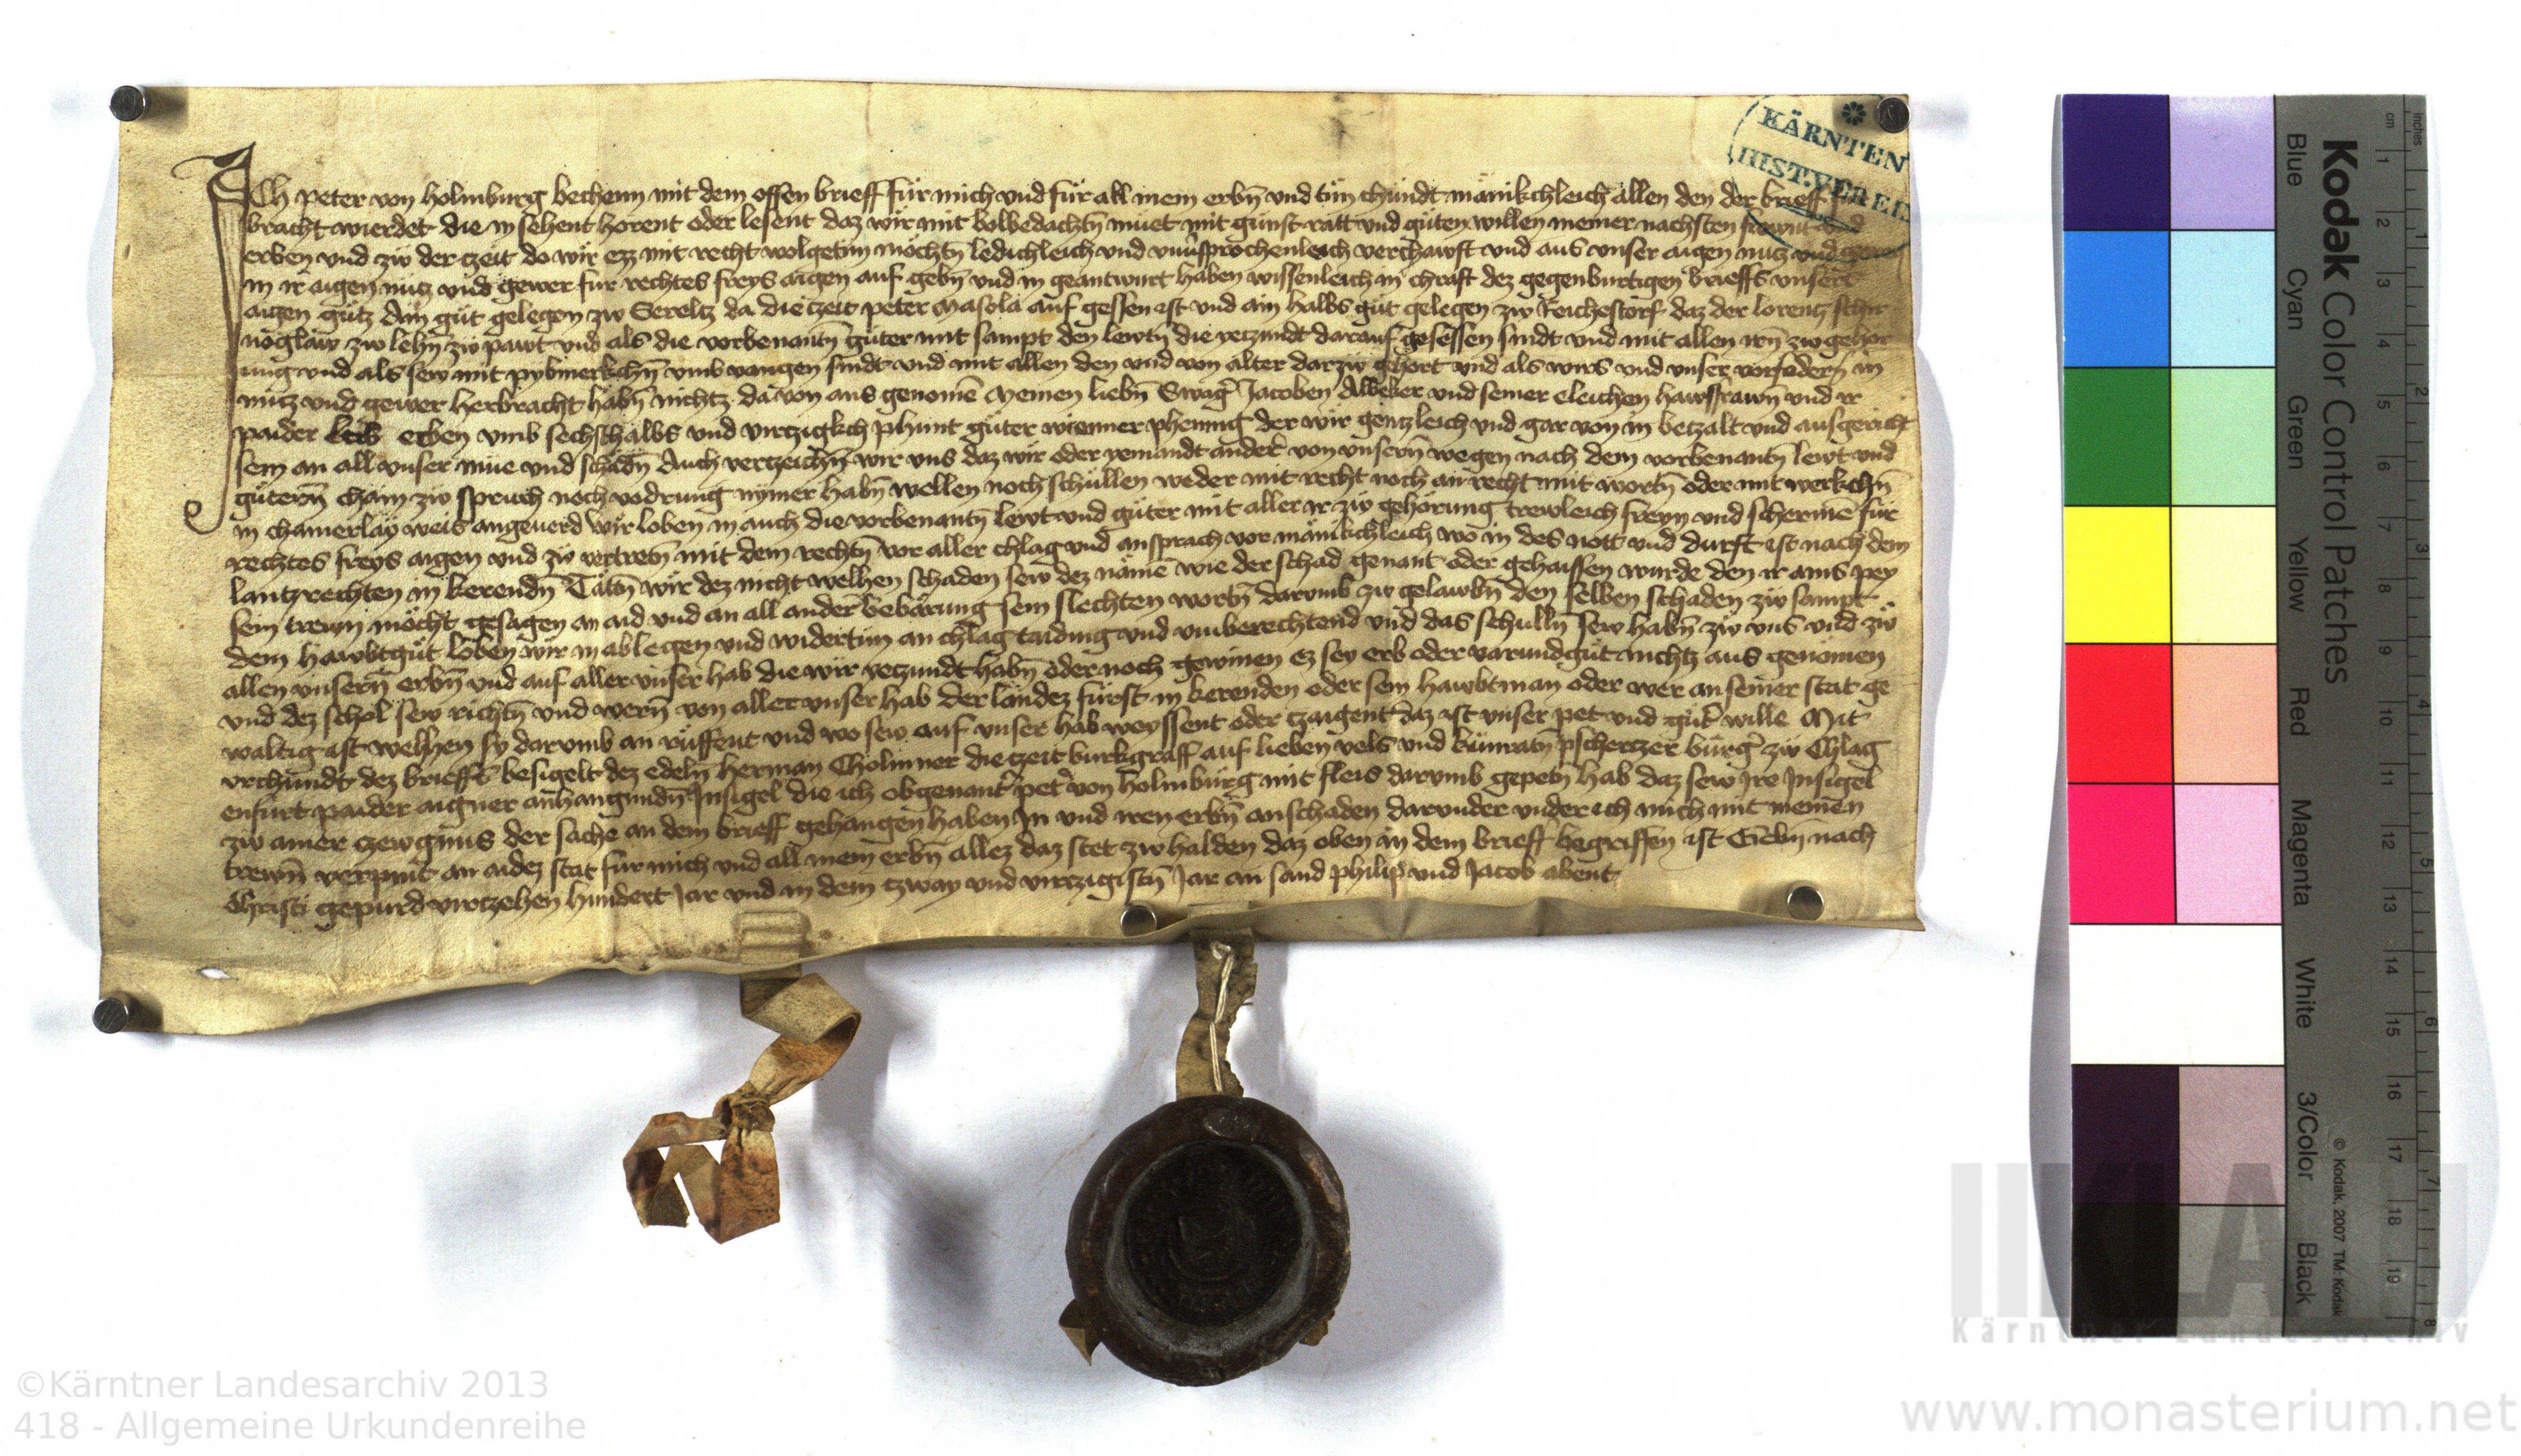 ICh peter von holmburg bechenn mit dem offen brieff für mich vnd für all mein erbn̄ vnd tün chündt mänikchleich allen den der brieff für
bracht wierdet die in sehent horent oder lesent daz wir mit volbedachtn̄ müet mit günst ratt vnd güten willen meiner nachsten frewnt vnd
erben vnd zw der czeit do wir ez mit recht wolgetün mochtn̄ ledichleich vnd vnuersprochenleich verchawft vnd aus vnser aigen nutz vnd gewer
in ir aigen nütz vnd gewer für rechtes freys aigen auf gebn̄ vnd in geantwurt haben wissenleich in chraft dez gegenburtigen brieffs vnsers
aigen gütz Ain güt gelegen zw Sereltz da die czeit peter Masola auf gessen ist vnd ain halbs güt gelegen zw Reichestorf daz der lorentz
noglaw zw lehn̄ zw pawt vnd als die vorbenantn̄ güter mit sampt den lewtn̄ die yeczundt darauf gesessen sindt vnd mit allen irn̄ zw gehor
ung vnd als sew mit pybmerkchn̄ vmb vangen sindt vnd mit allen den vnd von alter darzw gehort vnd als wirs vnd vnser vorfodern̄ in
nutz vnd gewer herbracht habn̄ nichtz da von aus genomē Meinen liebn̄ Swaḡ Jacoben Albeker vnd seiner eleichen hawsfrawn̄ vnd ir
paider erben vmb sechschalbs vnd virczigkch phunt güter wienner phennig der wir gentzleich vnd gar von in betzalt vnd ausgericht
sein an all vnser müe vnd schadn̄ Auch verczeichn̄ wir vns daz wir oder yemandt ander̄ von vnsern̄ wegen nach dem vorbenantn̄ lewt vnd
gütern̄ chain zw spruch noch vodrung nymer habn̄ wellen noch schüllen weder mit recht noch an recht mit wortn̄ oder mit werkchn̄
in chainerlay weis angeuerd Wir loben in auch die vorbenantn̄ lewt vnd güter mit aller ir zw gehörung trewleich freyn vnd schermē für
rechtes freys aigen vnd zw vertretn̄ mit dem rechtn̄ vor aller chlag vnd ansprach vor mänikchleich wo in des nott vnd durft ist nach dem
lantzrechten in kerendn̄ Tätn̄ wir dez nicht welhen schaden sew dez nämē wie der schad genant oder gehaissen wurde den ir ains pey
sein trewn möcht gesagen an aid vnd an all ander bebärung sein slechten wortn̄ darumb zw gelawbn̄ den selben schaden zw sampt
dem hawbtgüt loben wir in ablegen vnd widertün an chlag taiding vnd vmberechtend vnd das schulln̄ sew habn̄ zw vns vnd zw
allen vnsern̄ erbn̄ vnd auf aller vnser hab die wir yeczundt habn̄ oder noch gewinen ez sey erb oder varundgüt nichtz aus genomen
vnd dez schol sew richtn̄ vnd wern̄ von aller vnser hab der landez fürst in kerenden oder sein hawbtman oder wer an seiner stat ge
waltig ist welhen sy darumb an rüffent vnd wo sew auf vnser hab weyssent oder czaigent daz ist vnser pet vnd güt̄ wille Mit
vrchündt dez brieffs besigelt dez edeln̄ Herman Cholinner die czeit burkgraff auf lieben vels vnd künratn̄ pschertzer bürḡ zw Chlag
enfurt paider aigner anhangundn̄ Jnsigel die ich obgenant̄ pet̄ von holmbürg mit fleis darumb gepetn̄ hab daz sew Jre Jnsigel
zw ainer czewgnüs der sache an dem brieff gehangen haben Jn vnd iren erbn̄ anschaden darunder vnder ich mich mit meinen
trewn̄ verpint an aidez stat für mich vnd all mein erbn̄ allez daz stet zw halden daz oben an dem brieff begriffen ist Gebn̄ nach
Christi gepurd virczehen hundert Jar vnd in dem tzway vnd virczigistn̄ Jar an sand philip vnd Jacob abent
KÄRNTEN
HIST. VEREIN
Kodak Color Control Patches
Blue Cyan Green Yellow Red Magenta White 3/Color Black
© Kodak, 2007 TM: Kodak
cm 1 2 3 4 5 6 7 8 9 10 11 12 13 14 15 16 17 18 19
inches 1 2 3 4 5 6 7 8
Kärntner Landesarchiv
©Kärntner Landesarchiv 2013
418 - Allgemeine Urkundenreihe
www.monasterium.net